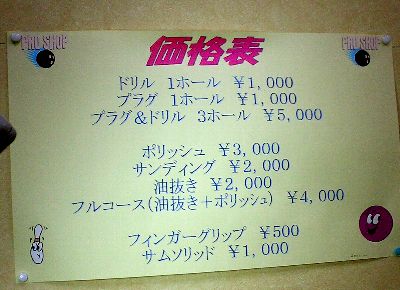 PRO SHOP
PRO SHOP
価格表
ドリル 1ホール ¥1,000
プラグ 1ホール ¥1,000
プラグ&ドリル 3ホール ¥5,000
ポリッシュ ¥3,000
サンディング ¥2,000
油抜き ¥2,000
フルコース(油抜き+ポリッシュ) ¥4,000
フィンガーグリップ ¥500
サムソリッド ¥1,000